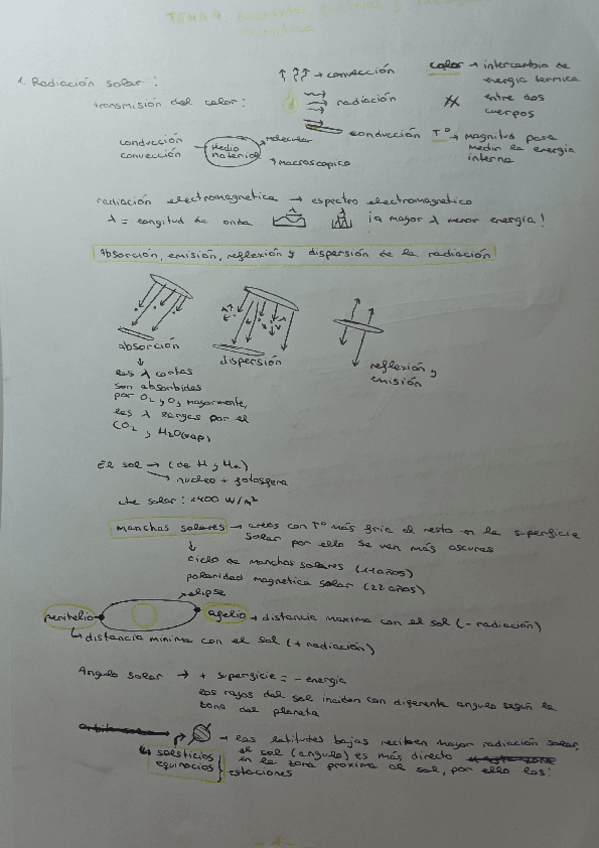 TEMA 4
1. Radiación solar:
transmisión del calor:
→ convección
→ radiación
→ conducción
calor → intercambio de
energía termica
entre dos
cuerpos
Tº → magnitud para
medir la energía
interna
conducción
convección
Medio
material
molecular
Macroscopico
radiación electromagnetica → espectro electromagnetico
λ = longitud de onda
¡a mayor λ menor energía!
Absorción, emisión, reflexión y dispersión de la radiación
absorción
dispersión
reflexión y
emisión
las λ cortas
son absorbidas
por O₂ y O₃ mayormente,
las λ largas por el
CO₂ y H₂O(vap)
El sol → (de H y He)
→ nucleo + fotosfera
cte solar: 1400 W/m²
manchas solares → areas con Tº más fria al resto en la superficie
solar por ello se ven más oscuras
ciclo de manchas solares (11 años)
polaridad magnetica solar (22 años)
elipse
perihelio
afelio → distancia maxima con el sol (- radiación)
distancia minima con el sol (+ radiación)
Angulo solar → + superficie = - energía
los rayos del sol inciden con diferente angulo según la
zona del planeta
→ las latitudes bajas reciben mayor radiación solar,
el sol (angulo) es más directo
en la zona proxima al sol, por ello los:
solsticios
equinocios
estaciones
- 1 -